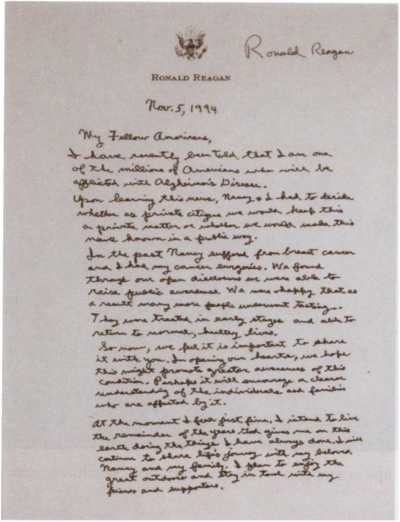 Ronald Reagan
RONALD REAGAN
Nov. 5, 1994
My Fellow Americans,
I have recently been told that I am one
of the millions of Americans who will be
afflicted with Alzheimer's Disease.
Upon learning this news, Nancy & I had to decide
whether as private citizens we would keep this
a private matter or whether we would make this
news known in a public way.
In the past Nancy suffered from breast cancer
and I had my cancer surgeries. We found
through our open disclosures we were able to
raise public awareness. We were happy that as
a result many more people underwent testing.
They were treated in early stages and able to
return to normal, healthy lives.
So now, we feel it is important to share
it with you. In opening our hearts, we hope
this might promote greater awareness of this
condition. Perhaps it will encourage a clearer
understanding of the individuals and families
who are affected by it.
At the moment I feel just fine. I intend to live
the remainder of the years God gives me on this
earth doing the things I have always done. I will
continue to share life's journey with my beloved
Nancy and my family. I plan to enjoy the
great outdoors and stay in touch with my
friends and supporters.